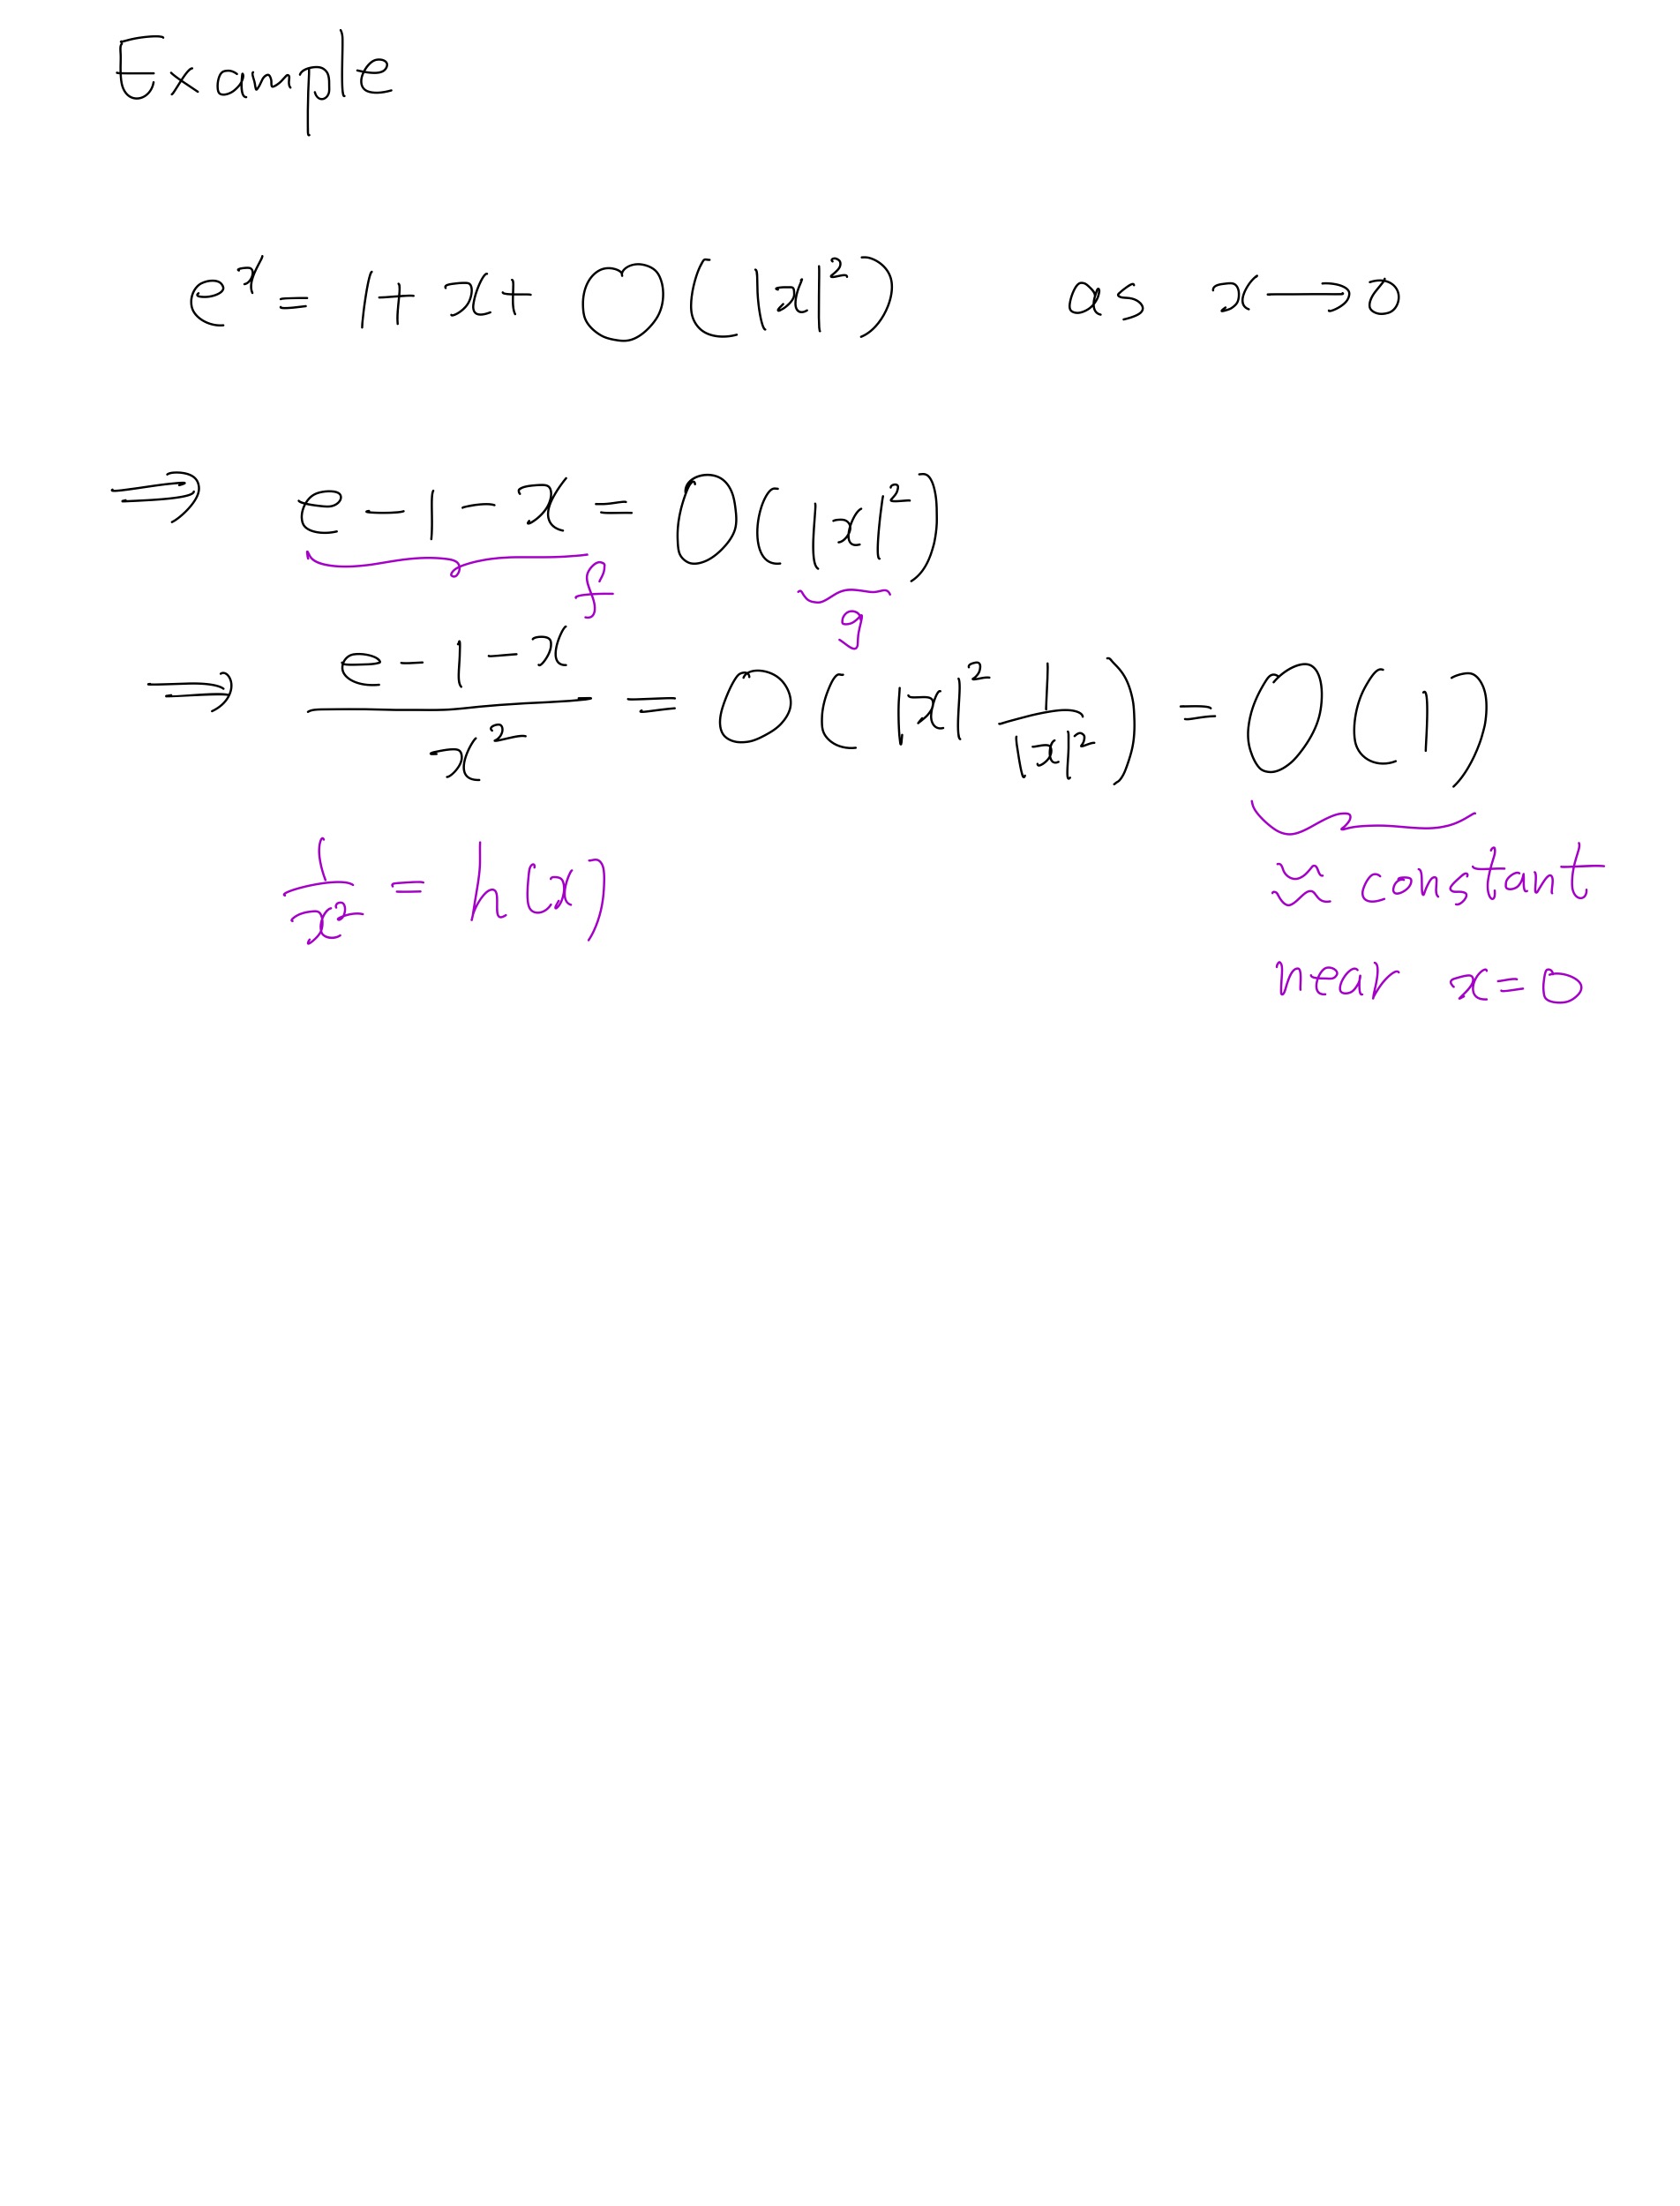 Example
e^x = 1 + x + O(|x|^2) as x → 0
⇒ e - 1 - x = O(|x|^2)
f
g
⇒ (e - 1 - x)/x^2 = O(|x|^2 1/|x|^2) = O(1)
1/x^2 = h(x)
≈ constant
near x = 0